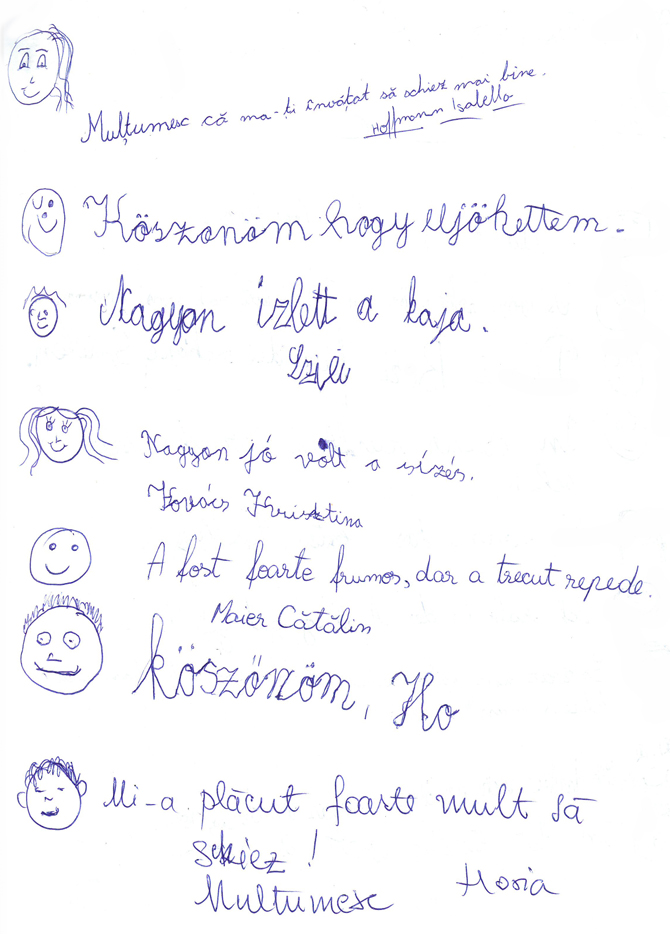 Mulțumesc că ma-ți învățat să schiez mai bine.
Hoffmann Isabella
Köszönöm hogy eljöhettem.
Nagyon izlett a kaja.
Szili
Nagyon jó volt a sízés.
Kovács Krisztina
A fost foarte frumos, dar a trecut repede.
Maier Cătălin
köszönöm, Ho
Mi-a plăcut foarte mult să
schiez!
Multumesc
Horia